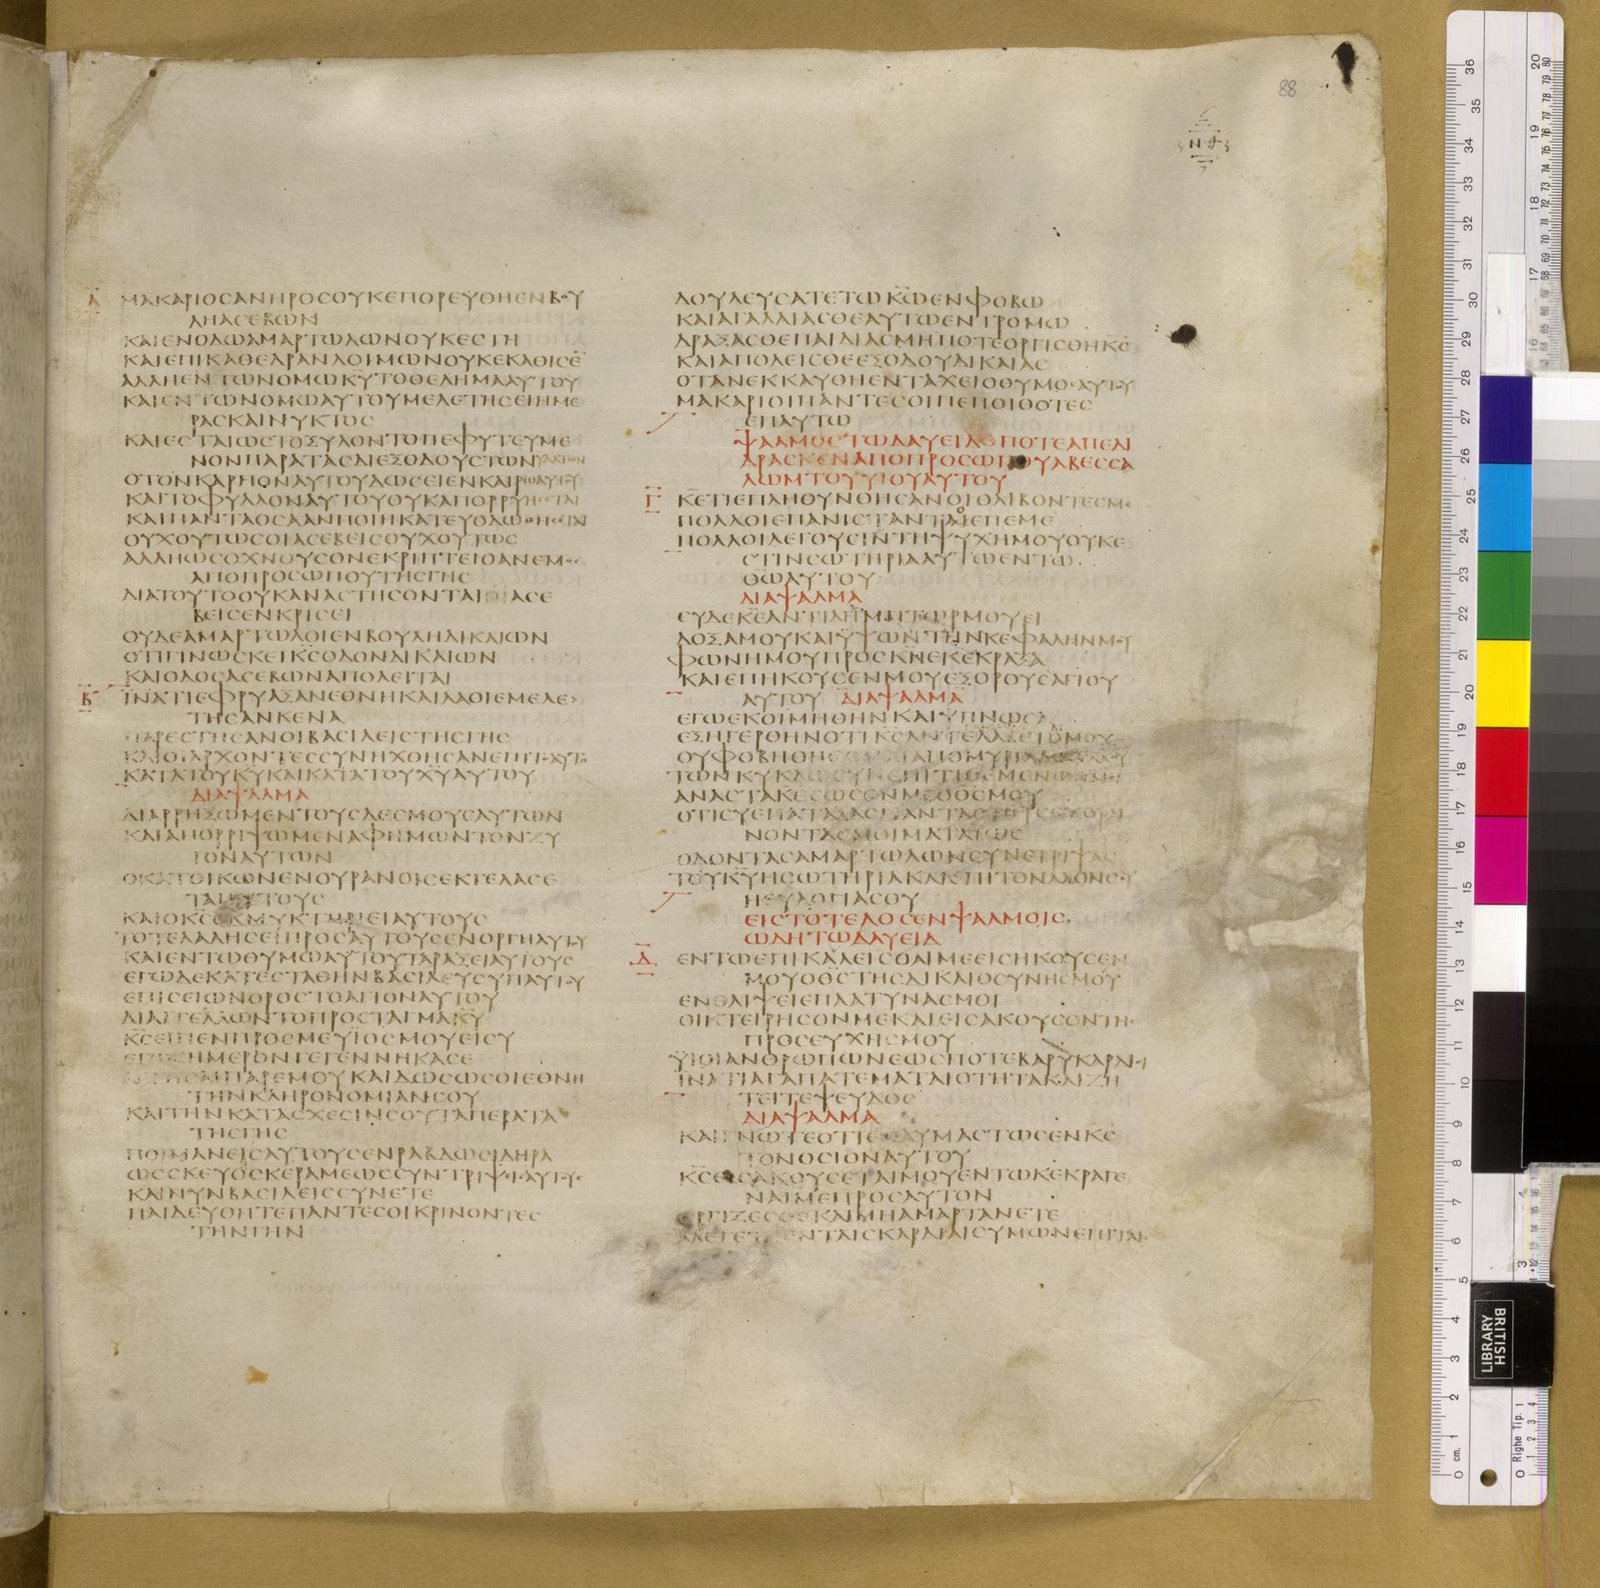 88
ΝΘ
Α ΜΑΚΑΡΙΟϹΑΝΗΡΟϹΟΥΚΕΠΟΡΕΥΘΗΕΝΒΟΥ
ΛΗΑϹΕΒΩΝ
ΚΑΙΕΝΟΔΩΑΜΑΡΤΩΛΩΝΟΥΚΕϹΤΗ
ΚΑΙΕΠΙΚΑΘΕΔΡΑΝΛΟΙΜΩΝΟΥΚΕΚΑΘΙϹΕ
ΑΛΛΗΕΝΤΩΝΟΜΩΚΥΤΟΘΕΛΗΜΑΑΥΤΟΥ
ΚΑΙΕΝΤΩΝΟΜΩΑΥΤΟΥΜΕΛΕΤΗϹΕΙΗΜΕ
ΡΑϹΚΑΙΝΥΚΤΟϹ
ΚΑΙΕϹΤΑΙΩϹΤΟΞΥΛΟΝΤΟΠΕΦΥΤΕΥΜΕ
ΝΟΝΠΑΡΑΤΑϹΔΙΕΞΟΔΟΥϹΤΩΝΥΔΑΤΩΝ
ΟΤΟΝΚΑΡΠΟΝΑΥΤΟΥΔΩϹΕΙΕΝΚΑΙΡΩΑΥΤΟΥ
ΚΑΙΤΟΦΥΛΛΟΝΑΥΤΟΥΟΥΚΑΠΟΡΡΥΗϹΕΤΑΙ
ΚΑΙΠΑΝΤΑΟϹΑΑΝΠΟΙΗΚΑΤΕΥΟΔΩΘΗϹΕΤΑΙ
ΟΥΧΟΥΤΩϹΟΙΑϹΕΒΕΙϹΟΥΧΟΥΤΩϹ
ΑΛΛΗΩϹΟΧΝΟΥϹΟΝΕΚΡΙΠΤΕΙΟΑΝΕΜΟϹ
ΑΠΟΠΡΟϹΩΠΟΥΤΗϹΓΗϹ
ΔΙΑΤΟΥΤΟΟΥΚΑΝΑϹΤΗϹΟΝΤΑΙΟΙΑϹΕ
ΒΕΙϹΕΝΚΡΙϹΕΙ
ΟΥΔΕΑΜΑΡΤΩΛΟΙΕΝΒΟΥΛΗΔΙΚΑΙΩΝ
ΟΤΙΓΙΝΩϹΚΕΙΚϹΟΔΟΝΔΙΚΑΙΩΝ
ΚΑΙΟΔΟϹΑϹΕΒΩΝΑΠΟΛΕΙΤΑΙ
Β ΪΝΑΤΙΕΦΡΥΑΞΑΝΕΘΝΗΚΑΙΛΑΟΙΕΜΕΛΕ
ΤΗϹΑΝΚΕΝΑ
ΠΑΡΕϹΤΗϹΑΝΟΙΒΑϹΙΛΕΙϹΤΗϹΓΗϹ
ΚΑΙΟΙΑΡΧΟΝΤΕϹϹΥΝΗΧΘΗϹΑΝΕΠΙΤΟΑΥΤΟ
ΚΑΤΑΤΟΥΚΥΚΑΙΚΑΤΑΤΟΥΧΥΑΥΤΟΥ
ΔΙΑΨΑΛΜΑ
ΔΙΑΡΡΗΞΩΜΕΝΤΟΥϹΔΕϹΜΟΥϹΑΥΤΩΝ
ΚΑΙΑΠΟΡΡΙΨΩΜΕΝΑΦΗΜΩΝΤΟΝΖΥ
ΓΟΝΑΥΤΩΝ
ΟΚΑΤΟΙΚΩΝΕΝΟΥΡΑΝΟΙϹΕΚΓΕΛΑϹΕ
ΤΑΙΑΥΤΟΥϹ
ΚΑΙΟΚϹΕΚΜΥΚΤΗΡΙΕΙΑΥΤΟΥϹ
ΤΟΤΕΛΑΛΗϹΕΙΠΡΟϹΑΥΤΟΥϹΕΝΟΡΓΗΑΥΤΟΥ
ΚΑΙΕΝΤΩΘΥΜΩΑΥΤΟΥΤΑΡΑΞΕΙΑΥΤΟΥϹ
ΕΓΩΔΕΚΑΤΕϹΤΑΘΗΝΒΑϹΙΛΕΥϹΥΠΑΥΤΟΥ
ΕΠΙϹΕΙΩΝΟΡΟϹΤΟΑΓΙΟΝΑΥΤΟΥ
ΔΙΑΓΓΕΛΛΩΝΤΟΠΡΟϹΤΑΓΜΑΚΥ
ΚϹΕΙΠΕΝΠΡΟϹΜΕΥΙΟϹΜΟΥΕΙϹΥ
ΕΓΩϹΗΜΕΡΟΝΓΕΓΕΝΝΗΚΑϹΕ
ΑΙΤΗϹΑΙΠΑΡΕΜΟΥΚΑΙΔΩϹΩϹΟΙΕΘΝΗ
ΤΗΝΚΛΗΡΟΝΟΜΙΑΝϹΟΥ
ΚΑΙΤΗΝΚΑΤΑϹΧΕϹΙΝϹΟΥΤΑΠΕΡΑΤΑ
ΤΗϹΓΗϹ
ΠΟΙΜΑΝΕΙϹΑΥΤΟΥϹΕΝΡΑΒΔΩϹΙΔΗΡΑ
ΩϹϹΚΕΥΟϹΚΕΡΑΜΕΩϹϹΥΝΤΡΙΨΕΙϹΑΥΤΟΥϹ
ΚΑΙΝΥΝΒΑϹΙΛΕΙϹϹΥΝΕΤΕ
ΠΑΙΔΕΥΘΗΤΕΠΑΝΤΕϹΟΙΚΡΙΝΟΝΤΕϹ
ΤΗΝΓΗΝ
ΔΟΥΛΕΥϹΑΤΕΤΩΚΩΕΝΦΟΒΩ
ΚΑΙΑΓΑΛΛΙΑϹΘΕΑΥΤΩΕΝΤΡΟΜΩ
ΔΡΑΞΑϹΘΕΠΑΙΔΙΑϹΜΗΠΟΤΕΟΡΓΙϹΘΗΚϹ
ΚΑΙΑΠΟΛΕΙϹΘΕΕΞΟΔΟΥΔΙΚΑΙΑϹ
ΟΤΑΝΕΚΚΑΥΘΗΕΝΤΑΧΕΙΟΘΥΜΟϹΑΥΤΟΥ
ΜΑΚΑΡΙΟΙΠΑΝΤΕϹΟΙΠΕΠΟΙΘΟΤΕϹ
ΕΠΑΥΤΩ
ΨΑΛΜΟϹΤΩΔΑΥΕΙΔΟΠΟΤΕΑΠΕΔΙ
ΔΡΑϹΚΕΝΑΠΟΠΡΟϹΩΠΟΥΑΒΕϹϹΑ
ΛΩΜΤΟΥΥΙΟΥΑΥΤΟΥ
Γ ΚΕΤΙΕΠΛΗΘΥΝΘΗϹΑΝΟΙΘΛΙΒΟΝΤΕϹΜΕ
ΠΟΛΛΟΙΕΠΑΝΙϹΤΑΝΤΑΙΕΠΕΜΕ
ΠΟΛΛΟΙΛΕΓΟΥϹΙΝΤΗΨΥΧΗΜΟΥΟΥΚΕ
ϹΤΙΝϹΩΤΗΡΙΑΑΥΤΩΕΝΤΩ
ΘΩΑΥΤΟΥ
ΔΙΑΨΑΛΜΑ
ϹΥΔΕΚΕΑΝΤΙΛΗΜΠΤΩΡΜΟΥΕΙ
ΔΟΞΑΜΟΥΚΑΙΫΨΩΝΤΗΝΚΕΦΑΛΗΝΜΟΥ
ΦΩΝΗΜΟΥΠΡΟϹΚΝΕΚΕΚΡΑΞΑ
ΚΑΙΕΠΗΚΟΥϹΕΝΜΟΥΕΞΟΡΟΥϹΑΓΙΟΥ
ΑΥΤΟΥ ΔΙΑΨΑΛΜΑ
ΕΓΩΕΚΟΙΜΗΘΗΝΚΑΙΥΠΝΩϹΑ
ΕΞΗΓΕΡΘΗΝΟΤΙΚϹΑΝΤΕΛΑΒΕΤΟΜΟΥ
ΟΥΦΟΒΗΘΗϹΟΜΑΙΑΠΟΜΥΡΙΑΔΩΝΛΑΟΥ
ΤΩΝΚΥΚΛΩϹΥΝΕΠΙΤΙΘΕΜΕΝΩΝΜΟΙ
ΑΝΑϹΤΑΚΕϹΩϹΟΝΜΕΟΘϹΜΟΥ
ΟΤΙϹΥΕΠΑΤΑΞΑϹΠΑΝΤΑϹΤΟΥϹΕΧΘΡΑΙ
ΝΟΝΤΑϹΜΟΙΜΑΤΑΙΩϹ
ΟΔΟΝΤΑϹΑΜΑΡΤΩΛΩΝϹΥΝΕΤΡΙΨΑϹ
ΤΟΥΚΥΗϹΩΤΗΡΙΑΚΑΙΕΠΙΤΟΝΛΑΟΝϹΟΥ
ΗΕΥΛΟΓΙΑϹΟΥ
ΕΙϹΤΟΤΕΛΟϹΕΝΨΑΛΜΟΙϹ
ΩΔΗΤΩΔΑΥΕΙΔ
Δ ΕΝΤΩΕΠΙΚΑΛΕΙϹΘΑΙΜΕΕΙϹΗΚΟΥϹΕΝ
ΜΟΥΟΘϹΤΗϹΔΙΚΑΙΟϹΥΝΗϹΜΟΥ
ΕΝΘΛΙΨΕΙΕΠΛΑΤΥΝΑϹΜΟΙ
ΟΙΚΤΕΙΡΗϹΟΝΜΕΚΑΙΕΙϹΑΚΟΥϹΟΝΤΗϹ
ΠΡΟϹΕΥΧΗϹΜΟΥ
ΫΙΟΙΑΝΘΡΩΠΩΝΕΩϹΠΟΤΕΒΑΡΥΚΑΡΔΙΟΙ
ΙΝΑΤΙΑΓΑΠΑΤΕΜΑΤΑΙΟΤΗΤΑΚΑΙΖΗ
ΤΕΙΤΕΨΕΥΔΟϹ
ΔΙΑΨΑΛΜΑ
ΚΑΙΓΝΩΤΕΟΤΙΕΘΑΥΜΑϹΤΩϹΕΝΚϹ
ΤΟΝΟϹΙΟΝΑΥΤΟΥ
ΚϹΕΙϹΑΚΟΥϹΕΤΑΙΜΟΥΕΝΤΩΚΕΚΡΑΓΕ
ΝΑΙΜΕΠΡΟϹΑΥΤΟΝ
ΟΡΓΙΖΕϹΘΕΚΑΙΜΗΑΜΑΡΤΑΝΕΤΕ
ΛΕΓΕΤΕΕΝΤΑΙϹΚΑΡΔΙΑΙϹΥΜΩΝΕΠΙΤΑΙϹ
BRITISH
LIBRARY
Righe Tip. 1
cm.